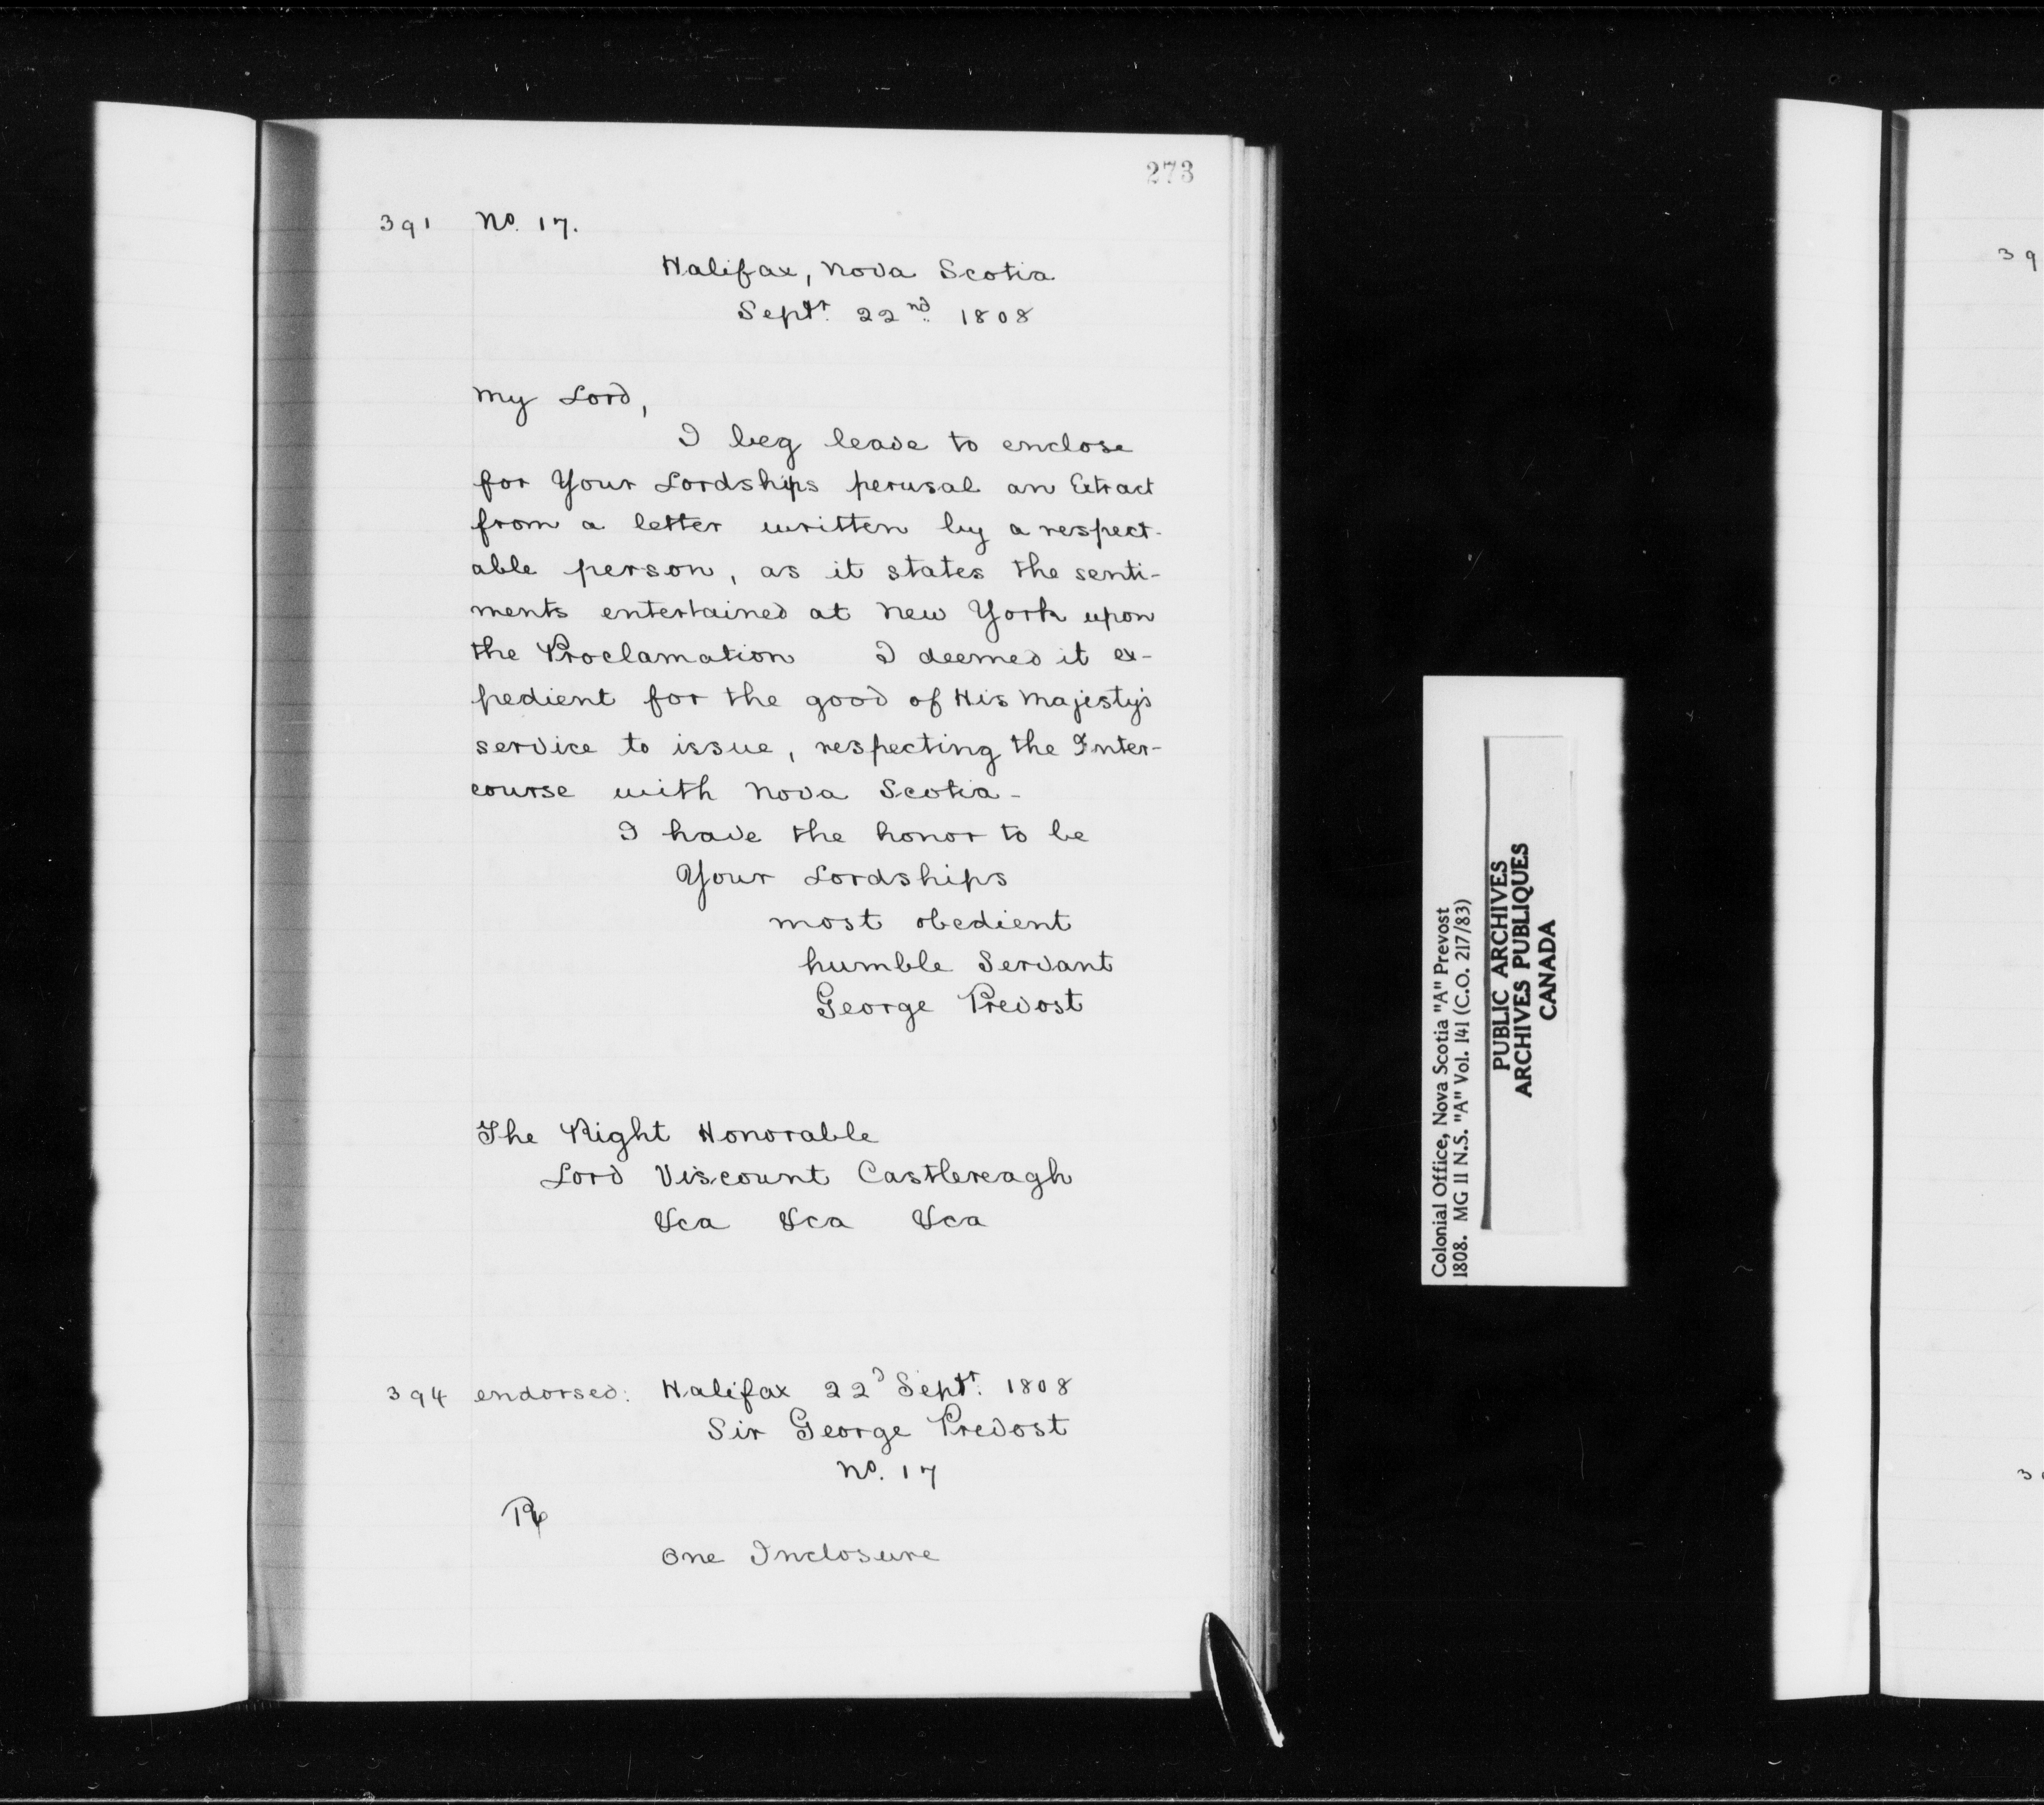 273
391 No. 17.
Halifax, Nova Scotia
Septr. 22nd. 1808
My Lord,
I beg leave to enclose
for Your Lordships perusal an Extract
from a letter written by a respect-
able person, as it states the senti-
ments entertained at New York upon
the Proclamation I deemed it ex-
pedient for the good of His Majesty's
service to issue, respecting the Inter-
course with Nova Scotia -
I have the honor to be
Your Lordships
most obedient
humble Servant
George Prevost
The Right Honorable
Lord Viscount Castlereagh
&ca &ca &ca
394 endorsed: Halifax 22d Septr. 1808
Sir George Prevost
No. 17
One Inclosure
Colonial Office, Nova Scotia "A" Prevost
1808. MG II N.S. "A" Vol. 141 (C.O. 217/83)
PUBLIC ARCHIVES
ARCHIVES PUBLIQUES
CANADA
39